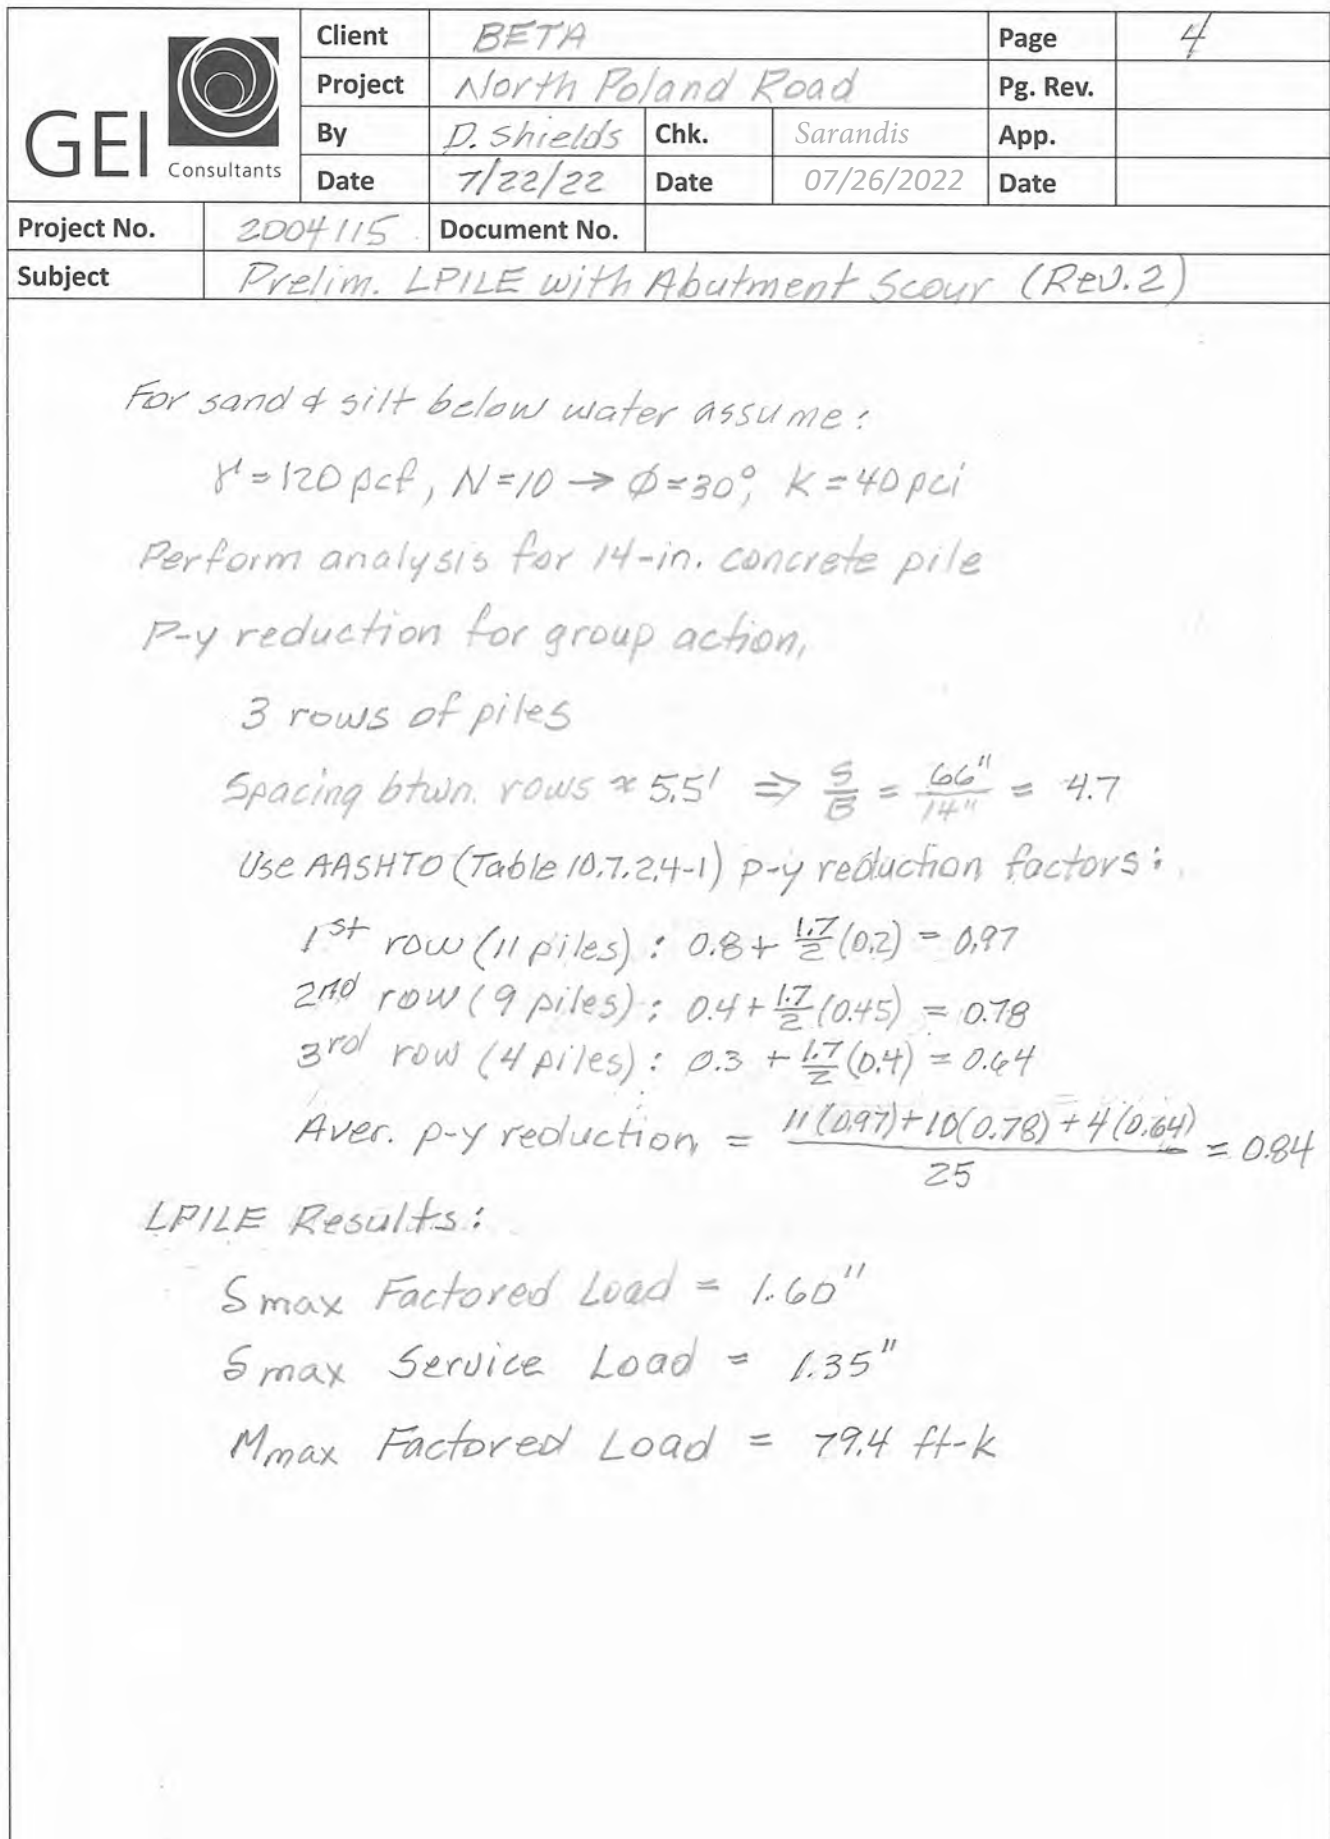 GEI Consultants
Client BETA Page 4
Project North Poland Road Pg. Rev.
By D. Shields Chk. Sarandis App.
Date 7/22/22 Date 07/26/2022 Date
Project No. 2004115 Document No.
Subject Prelim. LPILE with Abutment Scour (Rev.2)
For sand & silt below water assume:
γ' = 120 pcf, N=10 → φ=30°, K=40 pci
Perform analysis for 14-in. concrete pile
P-y reduction for group action,
3 rows of piles
Spacing btwn. rows ≈ 5.5' ⇒ S/B = 66"/14" = 4.7
Use AASHTO (Table 10.7.2.4-1) p-y reduction factors:
1st row (11 piles): 0.8 + 1.7/2 (0.2) = 0.97
2nd row (9 piles): 0.4 + 1.7/2 (0.45) = 0.78
3rd row (4 piles): 0.3 + 1.7/2 (0.4) = 0.64
Aver. p-y reduction, = 11(0.97)+10(0.78)+4(0.64)/25 = 0.84
LPILE Results:
δmax Factored Load = 1.60"
δmax Service Load = 1.35"
Mmax Factored Load = 79.4 ft-k